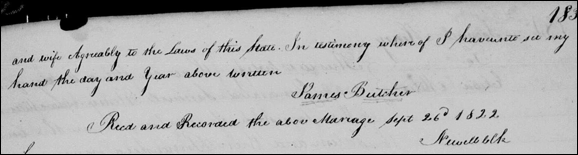 183
and wife Agreeably to the Laws of this State. In testimony where of I haveunto set my
hand the day and Year above written
James Butcher
Recd and Recorded the above Mariage Sept 26d 1822
Newell Clk